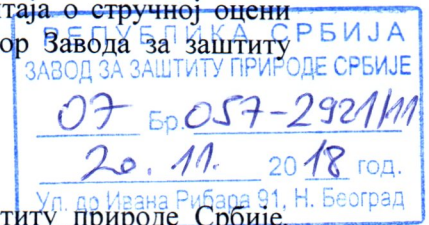 таја о стручној оцени
РЕПУБЛИКА СРБИЈА
ор Завода за заштиту
ЗАВОД ЗА ЗАШТИТУ ПРИРОДЕ СРБИЈЕ
07 Бр. 057-2921/11
20. 11. 2018 год.
Ул. др Ивана Рибара 91, Н. Београд
титу природе Србије,